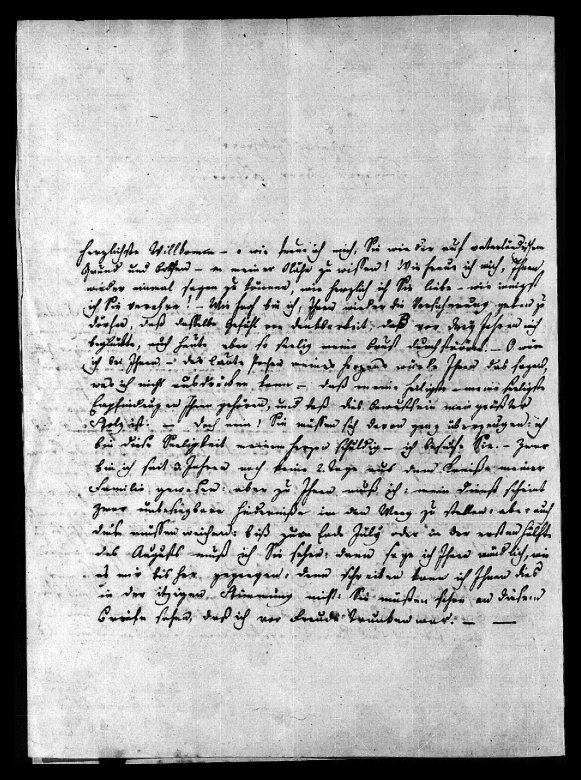 herzlichste Willkommen – o wie freue ich mich, Sie wieder auf vaterländischem
Grund und Boden – in meiner Nähe zu wissen! Wie freue ich mich, Ihnen
wieder einmal sagen zu können, wie herzlich ich Sie liebe – wie innigst
ich Sie verehre! – Wie froh bin ich, Ihnen wieder die Versicherung geben zu
dürfen, daß dasselbe Gefühl der Dankbarkeit, das vor drey Jahren mich
beglükte, auch heute eben so seelig meine Brust durchströmt. – O wäre
ich bei Ihnen – das laute Pochen meines Herzens würde Ihnen das sagen,
was ich nicht ausdrücken kann – daß meine heiligste – meine seligste
Empfindungen Ihnen gehören, und daß dies Bewußtsein mein größter
Stolz ist. – Doch nein! Sie müssen sich davon ganz überzeugen: ich
bin diese Seeligkeit meinem Herzen schuldig – ich besuche Sie. – Zwar
bin ich seit 3. Jahren noch keine 2. Tage aus dem Kreiße meiner
Familie gewesen: aber zu Ihnen muß ich: mein Dienst scheint
zwar unbesiegbare Hinderniße in den Weeg zu stellen: aber auch
diese müssen weichen: biß zum Ende July oder in der ersten Hälfte
des Augusts muß ich Sie sehen: dann sage ich Ihnen mündlich, wie
es mir bisher gegangen, denn schreiben kann ich Ihnen dies
in der itzigen Stimmung nicht: Sie müßen schon an diesem
Briefe sehen, daß ich vor Freude trunken war. – —